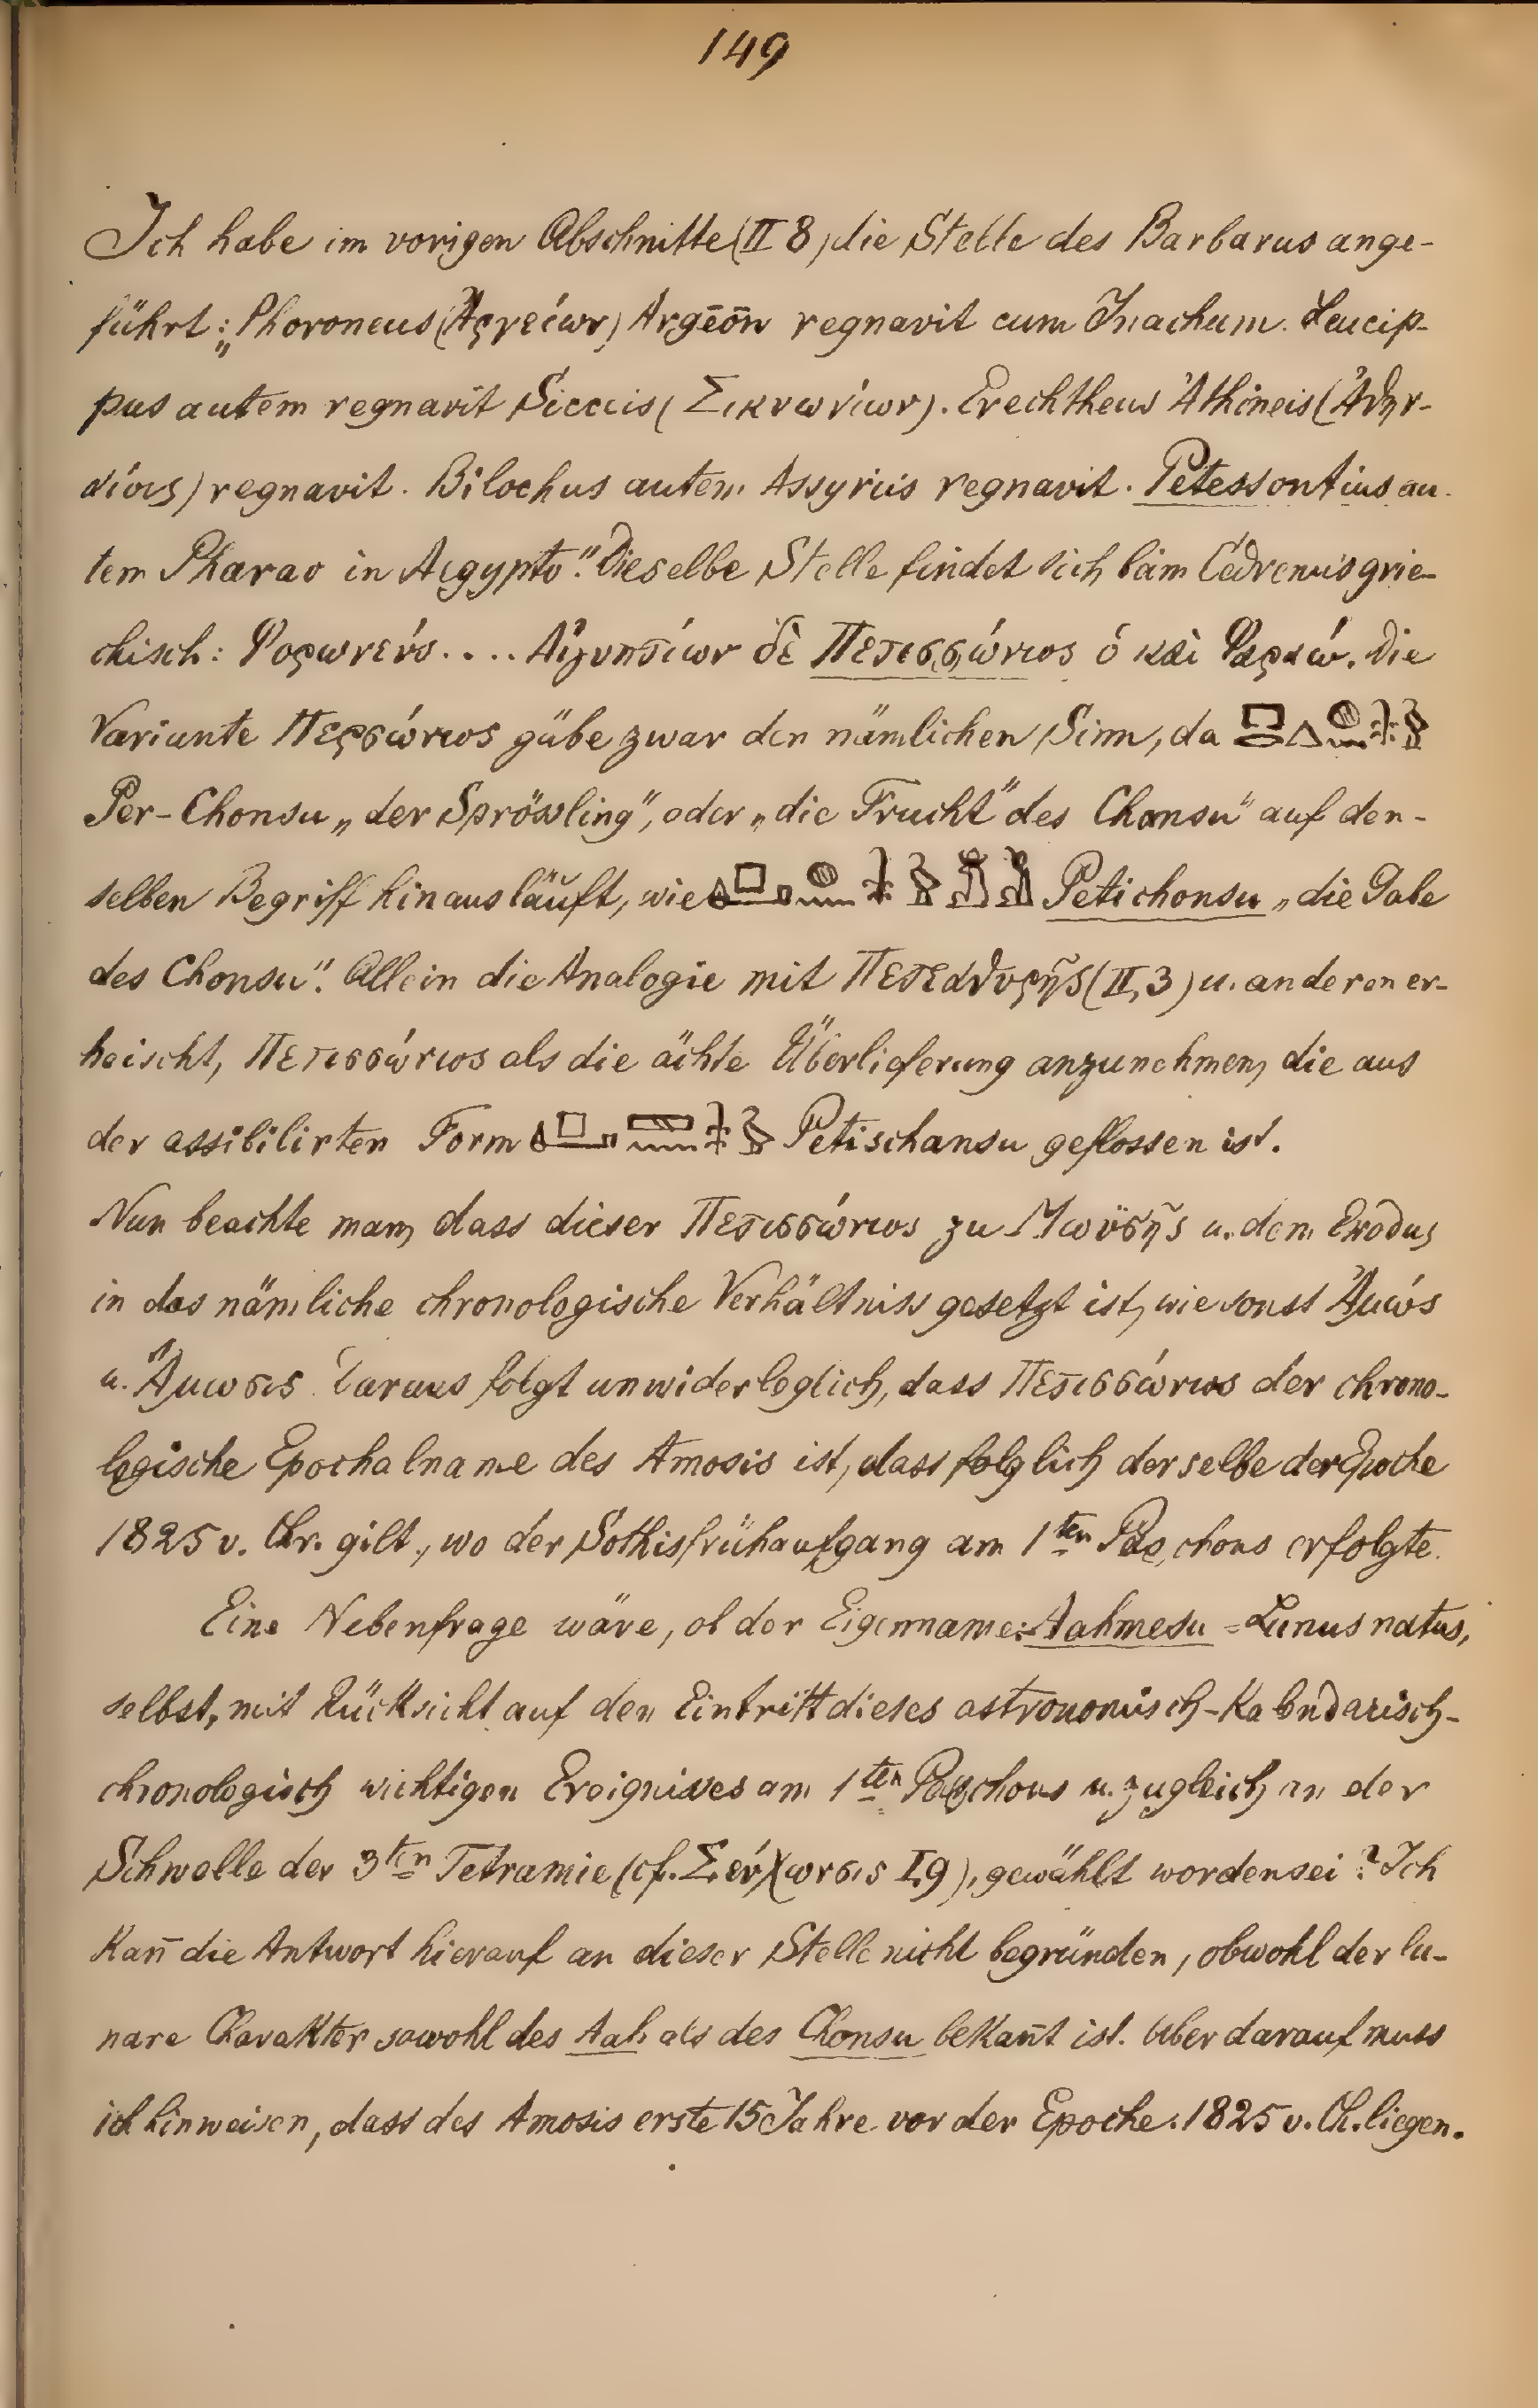 149
Ich habe im vorigen Abschnitte (II 8) die Stelle des Barbarus ange-
führt: „Phoroneus (Ἀργείων) Argēōn regnavit cum Inachum. Leucip-
pus autem regnavit Siccis (Σικυωνίων). Erechtheus Athineis (Ἀθην-
αίοις) regnavit. Bilochus autem Assyriis regnavit. Petessontius au-
tem Pharao in Aegypto“. Dieselbe Stelle findet sich beim Cedrenus grie-
chisch: Φορωνεύς.... Αἰγυπτίων δὲ Πετισσώνιος ὁ καὶ Φαραώ. Die
Variante Περσώνιος gäbe zwar den nämlichen Sinn, da
Per-Chonsu „der Sprössling“, oder „die Frucht“ des Chonsu“ auf den-
selben Begriff hinausläuft, wie Petichonsu „die Gabe
des Chonsu“. Allein die Analogie mit Πετεαθυρῆς (II, 3) u. anderen er-
heischt, Πετισσώνιος als die ächte Überlieferung anzunehmen, die aus
der assibilirten Form Petischansu geflossen ist.
Nun beachte man, dass dieser Πετισσώνιος zu Μωϋσῆς u. dem Exodus
in das nämliche chronologische Verhältniss gesetzt ist, wie sonst Ἀμώς
u. Ἄμωσις. Daraus folgt unwiderleglich, dass Πετισσώνιος der chrono-
logische Epochalname des Amosis ist, dass folglich derselbe der Epoche
1825 v. Chr. gilt, wo der Sothisfrühaufgang am 1ten Paschons erfolgte.
Eine Nebenfrage wäre, ob der Eigenname: Aahmesu = Lunus natus,
selbst, mit Rücksicht auf den Eintritt dieses astronomisch-kalendarisch-
chronologisch wichtigen Ereignisses am 1ten Paschons u. zugleich an der
Schwelle der 3ten Tetramenie (cf. Σεύχωσις I, 9), gewählt worden sei? Ich
kan̄ die Antwort hierauf an dieser Stelle nicht begründen, obwohl der lu-
nare Charakter sowohl des Aah als des Chonsu bekan̄t ist. Aber darauf muss
ich hinweisen, dass des Amosis erste 15 Jahre vor der Epoche 1825 v. Ch. liegen.